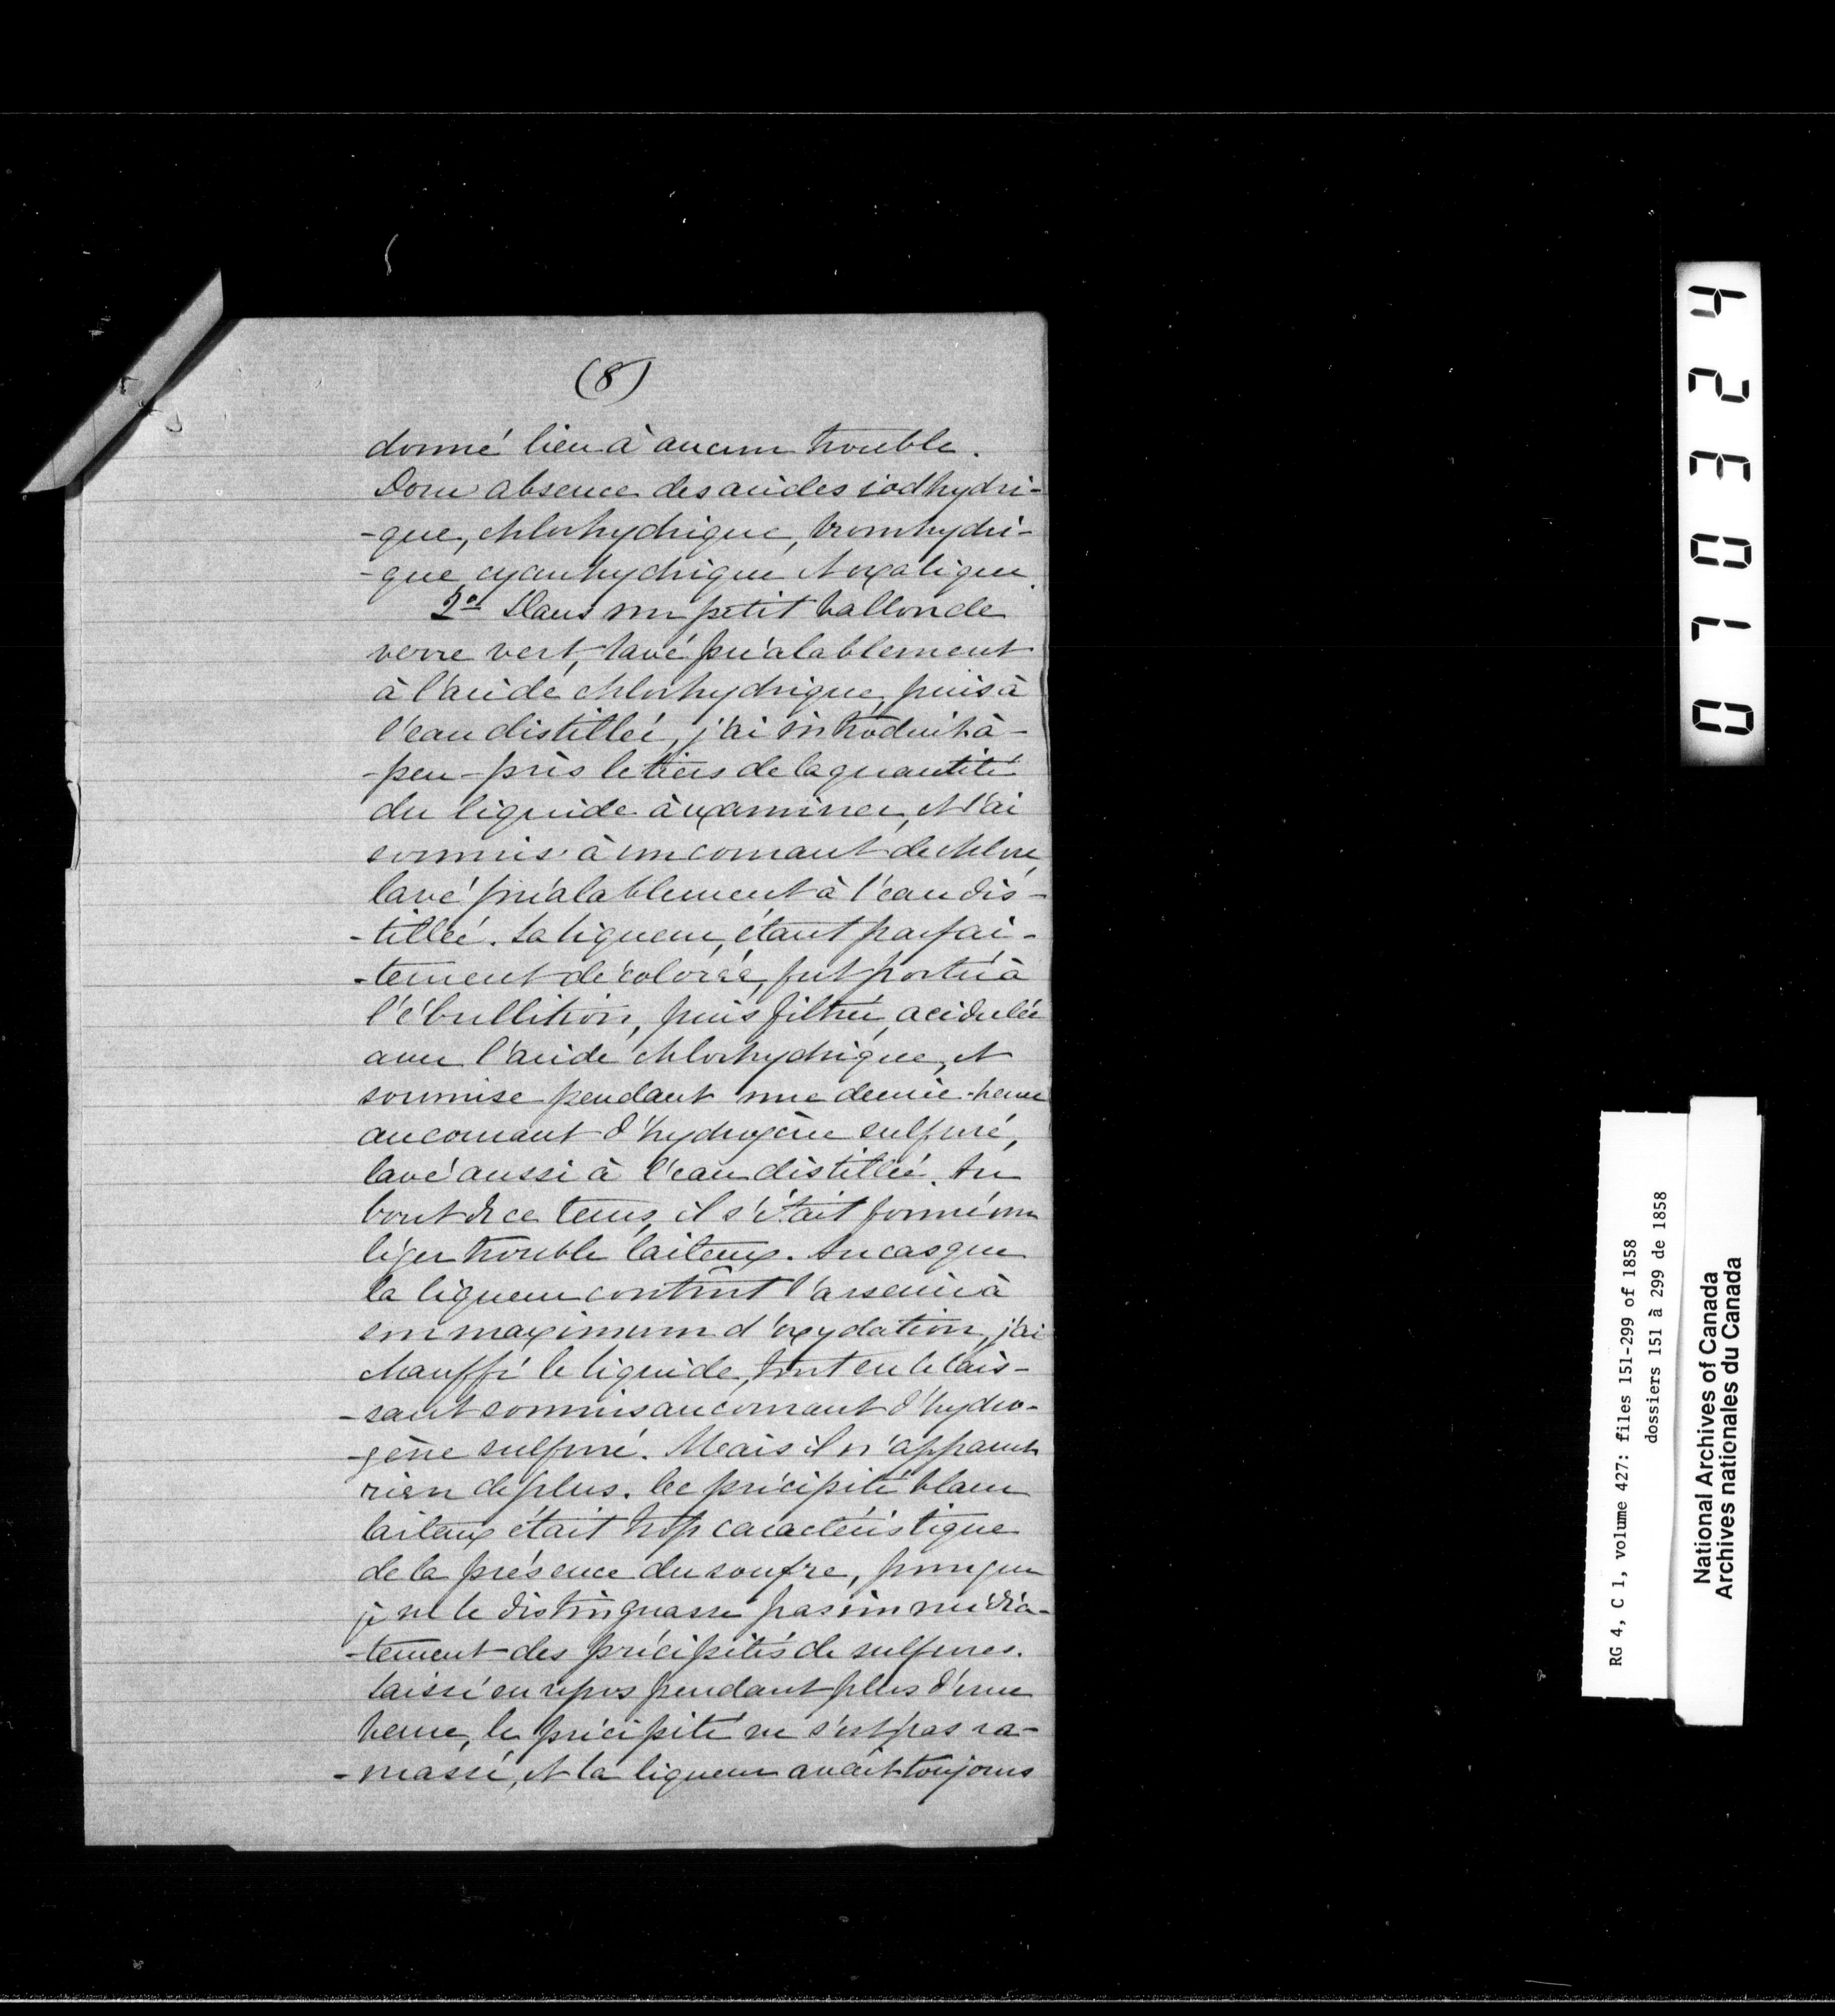 (8)
donné lieu à aucun trouble.
Donc absence des acides iodhydri-
-que, chlorhydrique, bromhydri-
-que, cyanhydrique et oxalique.
2º Dans un petit ballon de
verre vert, lavé préalablement
à l'acide chlorhydrique, puis à
l'eau distillée, j'ai introduit à-
-peu-près le tiers de la quantité
du liquide à examiner, et l'ai
soumis à un courant de chlore,
lavé préalablement à l'eau dis-
-tillée. La liqueur, étant parfai-
-tement décolorée, fut portée à
l'ébullition, puis filtrée, acidulée
avec l'acide chlorhydrique, et
soumise pendant une demie-heure
au courant d'hydrogène sulfuré,
lavé aussi à l'eau distillée. Au
bout de ce tems, il s'était formé un
léger trouble laiteux. Au cas que
la liqueur contînt l'arsenic à
son maximum d'oxydation, j'ai
chauffé le liquide, tout en le lais-
-sant soumis au courant d'hydro-
-gène sulfuré. Mais il n'apparut
rien de plus. Le précipité blanc
laiteux était trop caractéristique
de la présence du soufre, pour que
je ne le distinguasse pas immédia-
-tement des précipités de sulfures.
Laissé en repos pendant plus d'une
heure, le précipité ne s'est pas ra-
-massé, et la liqueur avait toujours
070324
RG 4, C 1, volume 427: files 151-299 of 1858
dossiers 151 à 299 de 1858
National Archives of Canada
Archives nationales du Canada